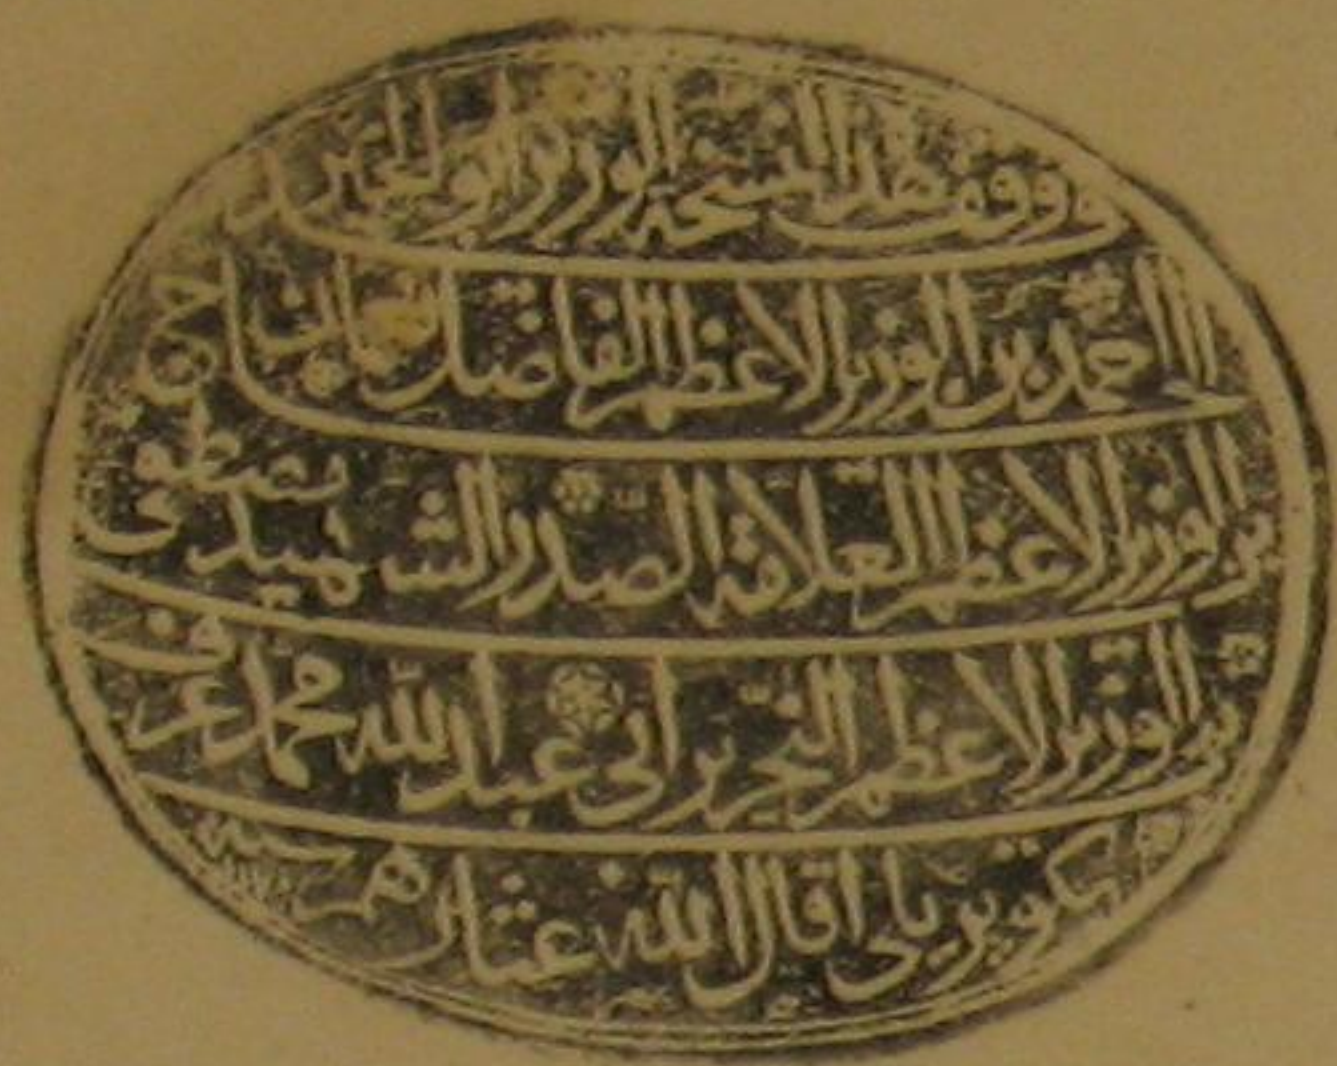 وقف هذا النسخة الوزير ابو الخير
احمد بن الوزير الاعظم الفاضل نعمان بن
بن الوزير الاعظم العلامة الصدر الشهيد مصطفى
بن الوزير الاعظم النحرير ابي عبد الله محمد عرف
بكوپريلي اقال الله عثارهم سنة